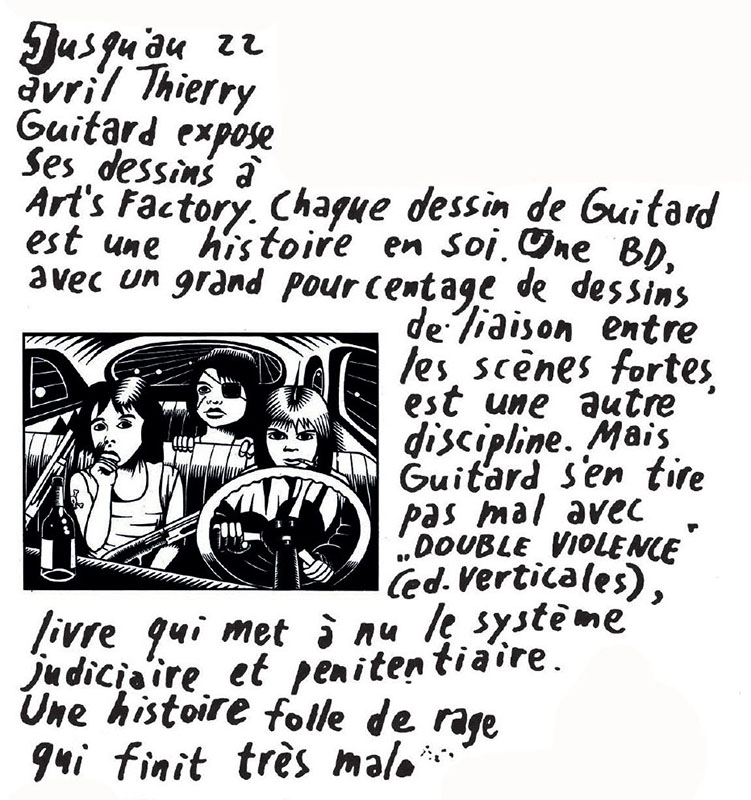 Jusqu'au 22
avril Thierry
Guitard expose
ses dessins à
Art's Factory. Chaque dessin de Guitard
est une histoire en soi. Une BD,
avec un grand pourcentage de dessins
de liaison entre
les scènes fortes,
est une autre
discipline. Mais
Guitard s'en tire
pas mal avec
„DOUBLE VIOLENCE"
(ed. Verticales),
livre qui met à nu le système
judiciaire et penitentiaire.
Une histoire folle de rage
qui finit très mal.